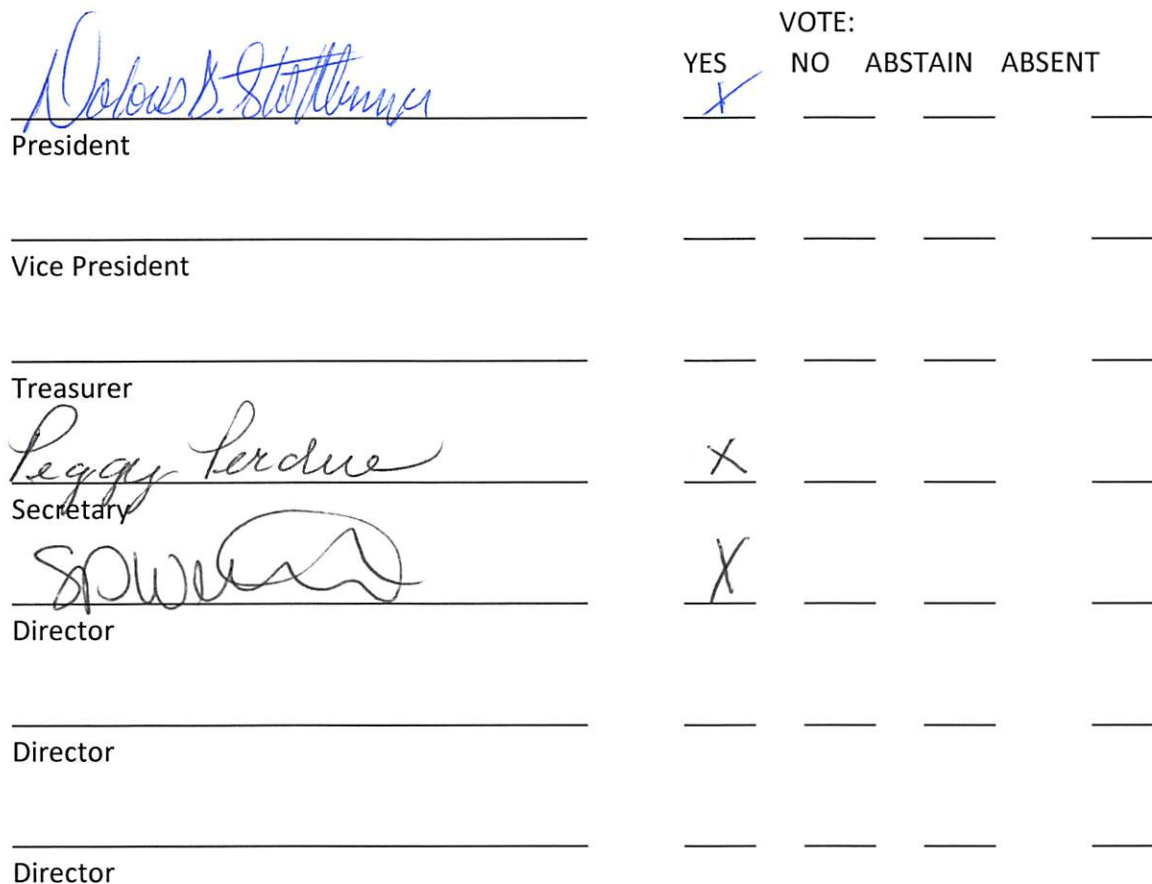 VOTE:
YES NO ABSTAIN ABSENT
X
President
Vice President
Treasurer
Peggy Perdue X
Secretary
X
Director
Director
Director